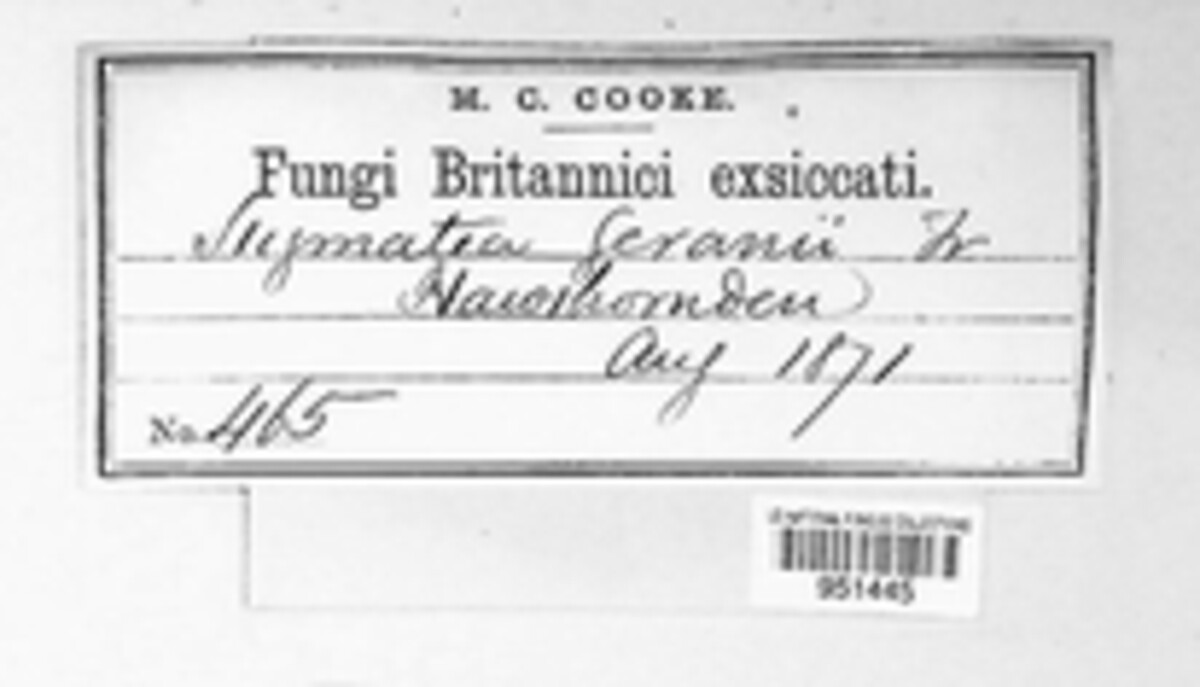 M. C. COOKE.
Fungi Britannici exsiccati.
Stigmatea Geranii Fr
Hawthornden
Aug 1871
No. 465
951445